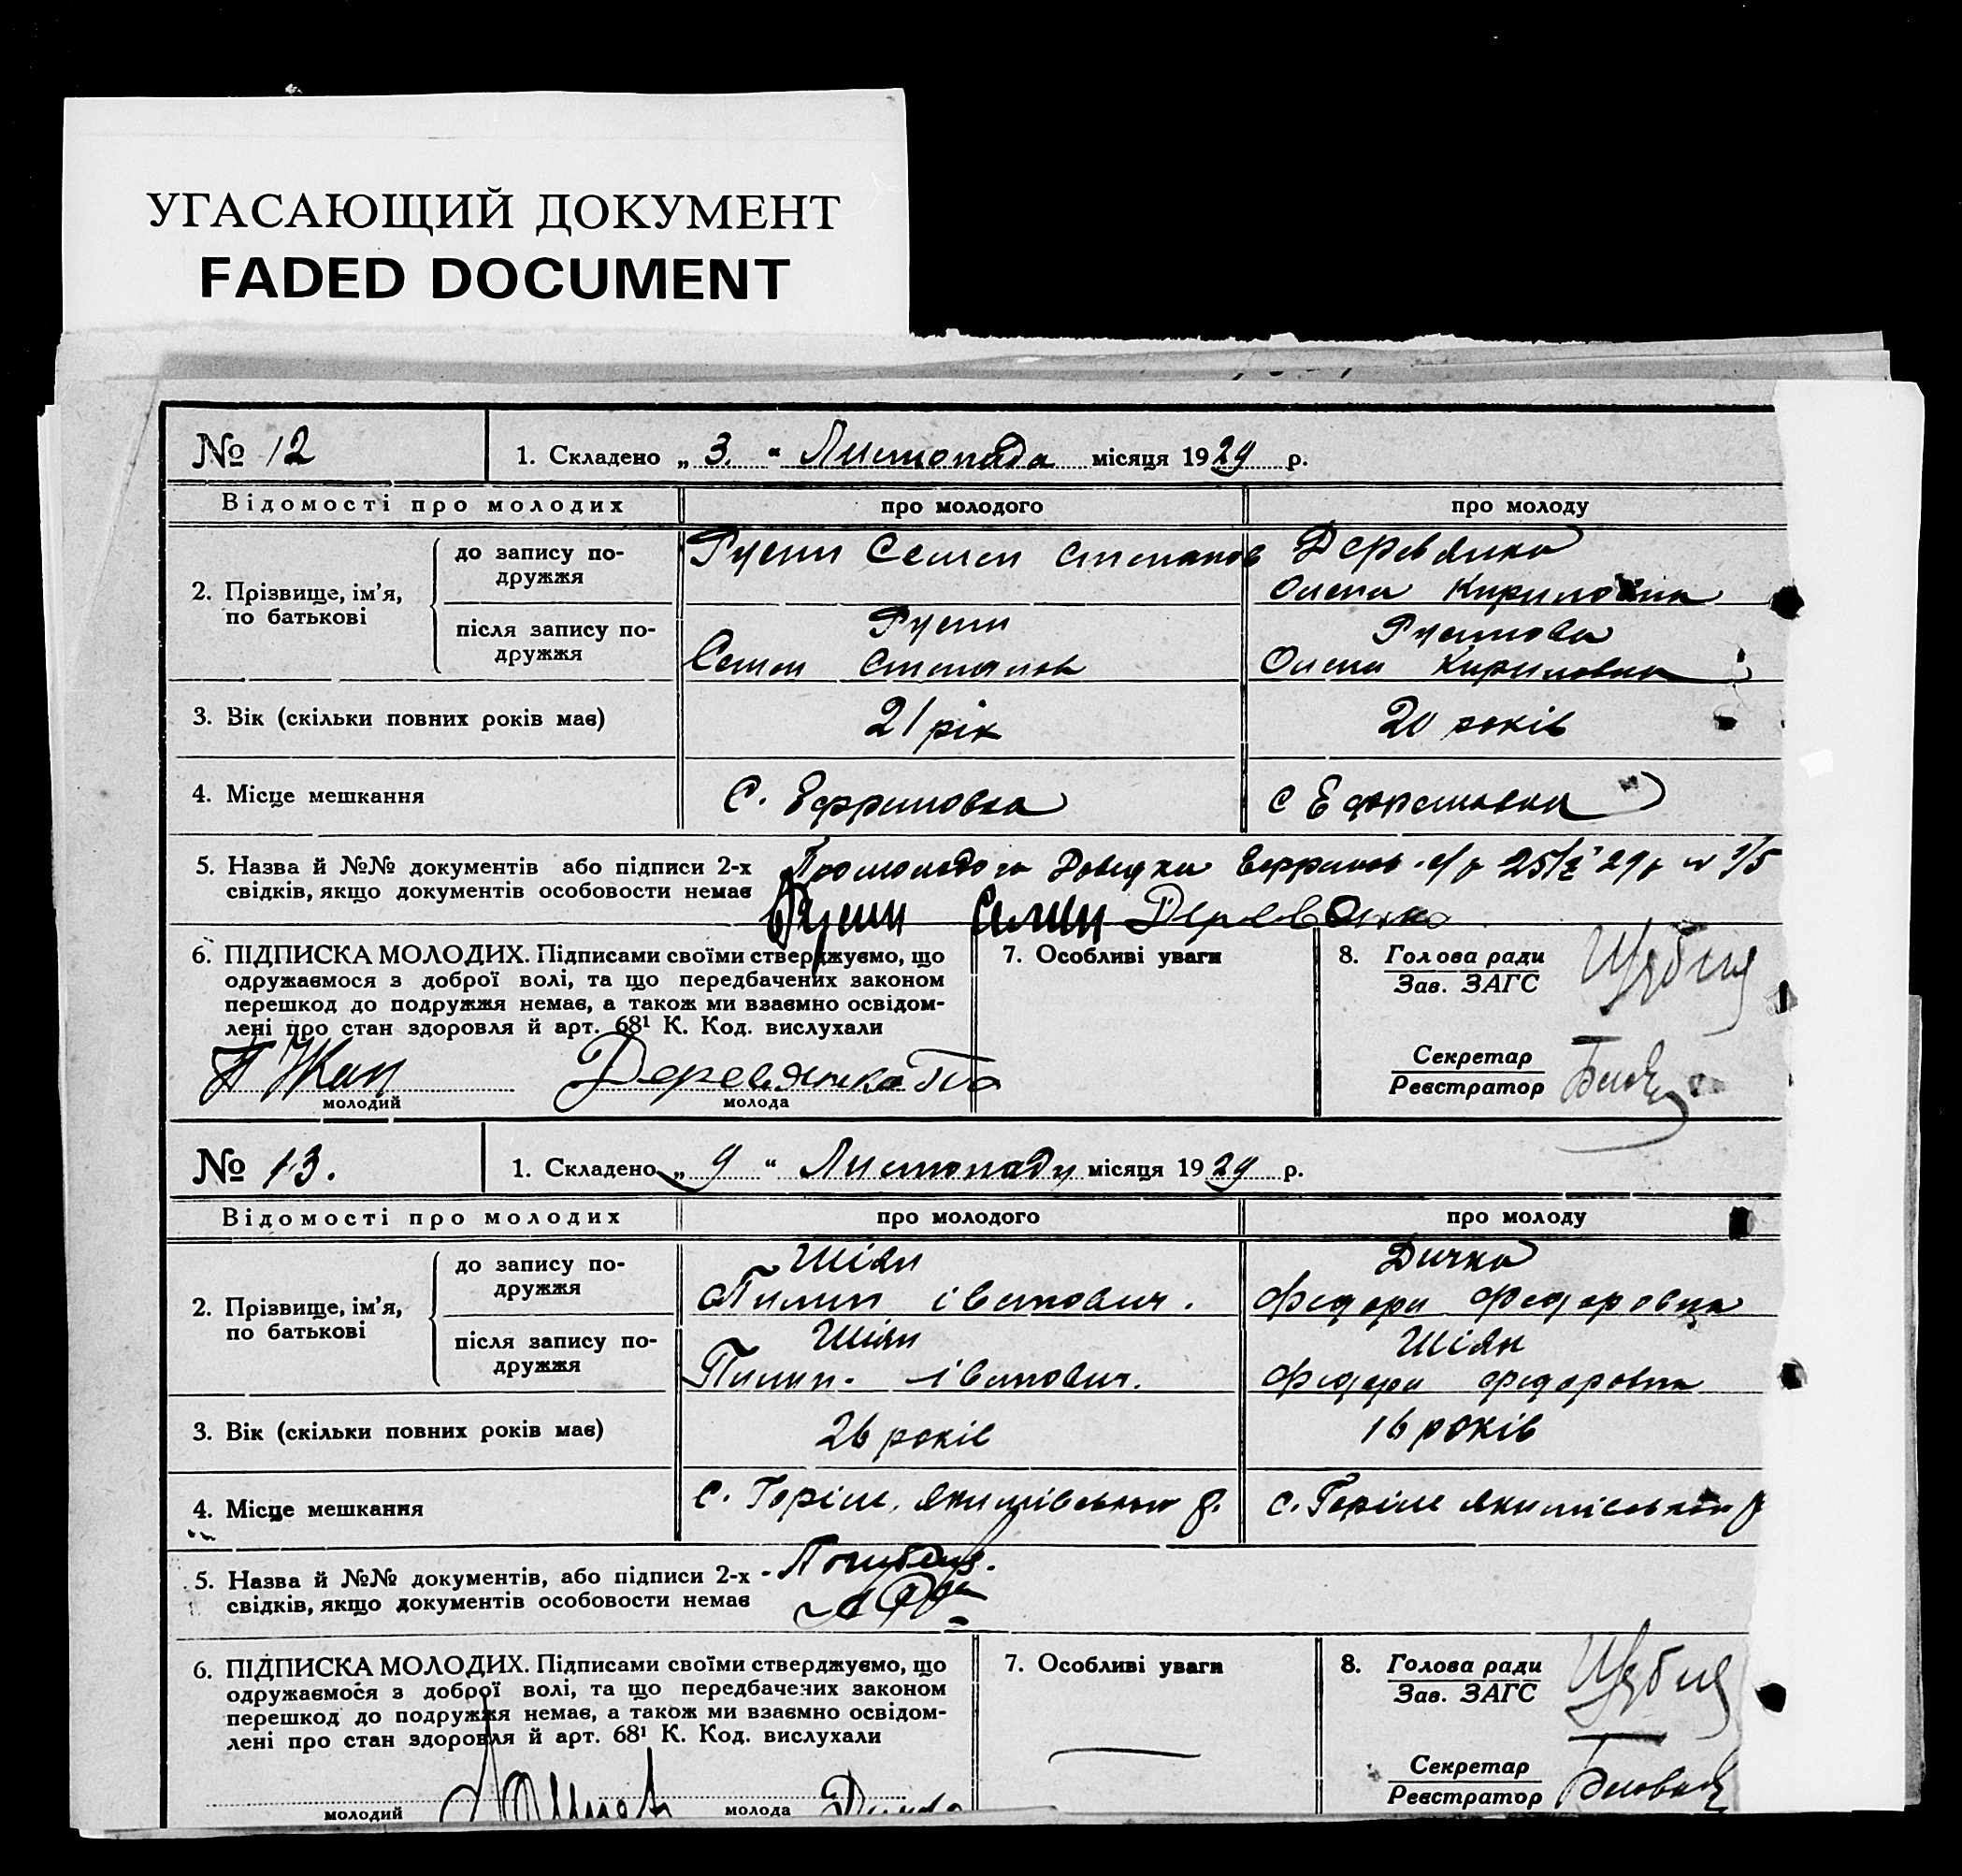 УГАСАЮЩИЙ ДОКУМЕНТ
FADED DOCUMENT
№ 12
1. Складено „ 3. “ Листопада місяця 1929 р.
Відомості про молодих
про молодого
про молоду
2. Прізвище, ім'я, по батькові
до запису по-
дружжя
Семен Степанов
Деревянко
Олена Кириловна
після запису по-
дружжя
Семен Степанов
Олена Кириловна
3. Вік (скільки повних років має)
21 рік
20 років
4. Місце мешкання
С. Ефримовка
с Ефремовка
5. Назва й №№ документів або підписи 2-х
свідків, якщо документів особовости немає
Про молодого Довідка
Деревянко
6. ПІДПИСКА МОЛОДИХ. Підписами своїми стверджуємо, що
одружаємося з доброї волі, та що передбачених законом
перешкод до подружжя немає, а також ми взаємно освідом-
лені про стан здоровля й арт. 68¹ К. Код. вислухали
Деревянко
молодий
молода
7. Особливі уваги
8. Голова ради
Зав. ЗАГС
Секретар
Реєстратор
№ 13.
1. Складено „ 9 “ Листопаду місяця 1929 р.
Відомості про молодих
про молодого
про молоду
2. Прізвище, ім'я, по батькові
до запису по-
дружжя
Шіян
Пилип іванович.
Дичко
Федора Федоровна
після запису по-
дружжя
Шіян
Пилип. іванович.
Шіян
Федора федоровна
3. Вік (скільки повних років має)
26 років
16 років
4. Місце мешкання
с. Горіле. Якимівського р.
с. Горіле Якимівського р
5. Назва й №№ документів, або підписи 2-х
свідків, якщо документів особовости немає
6. ПІДПИСКА МОЛОДИХ. Підписами своїми стверджуємо, що
одружаємося з доброї волі, та що передбачених законом
перешкод до подружжя немає, а також ми взаємно освідом-
лені про стан здоровля й арт. 68¹ К. Код. вислухали
молодий
молода
7. Особливі уваги
8. Голова ради
Зав. ЗАГС
Секретар
Реєстратор